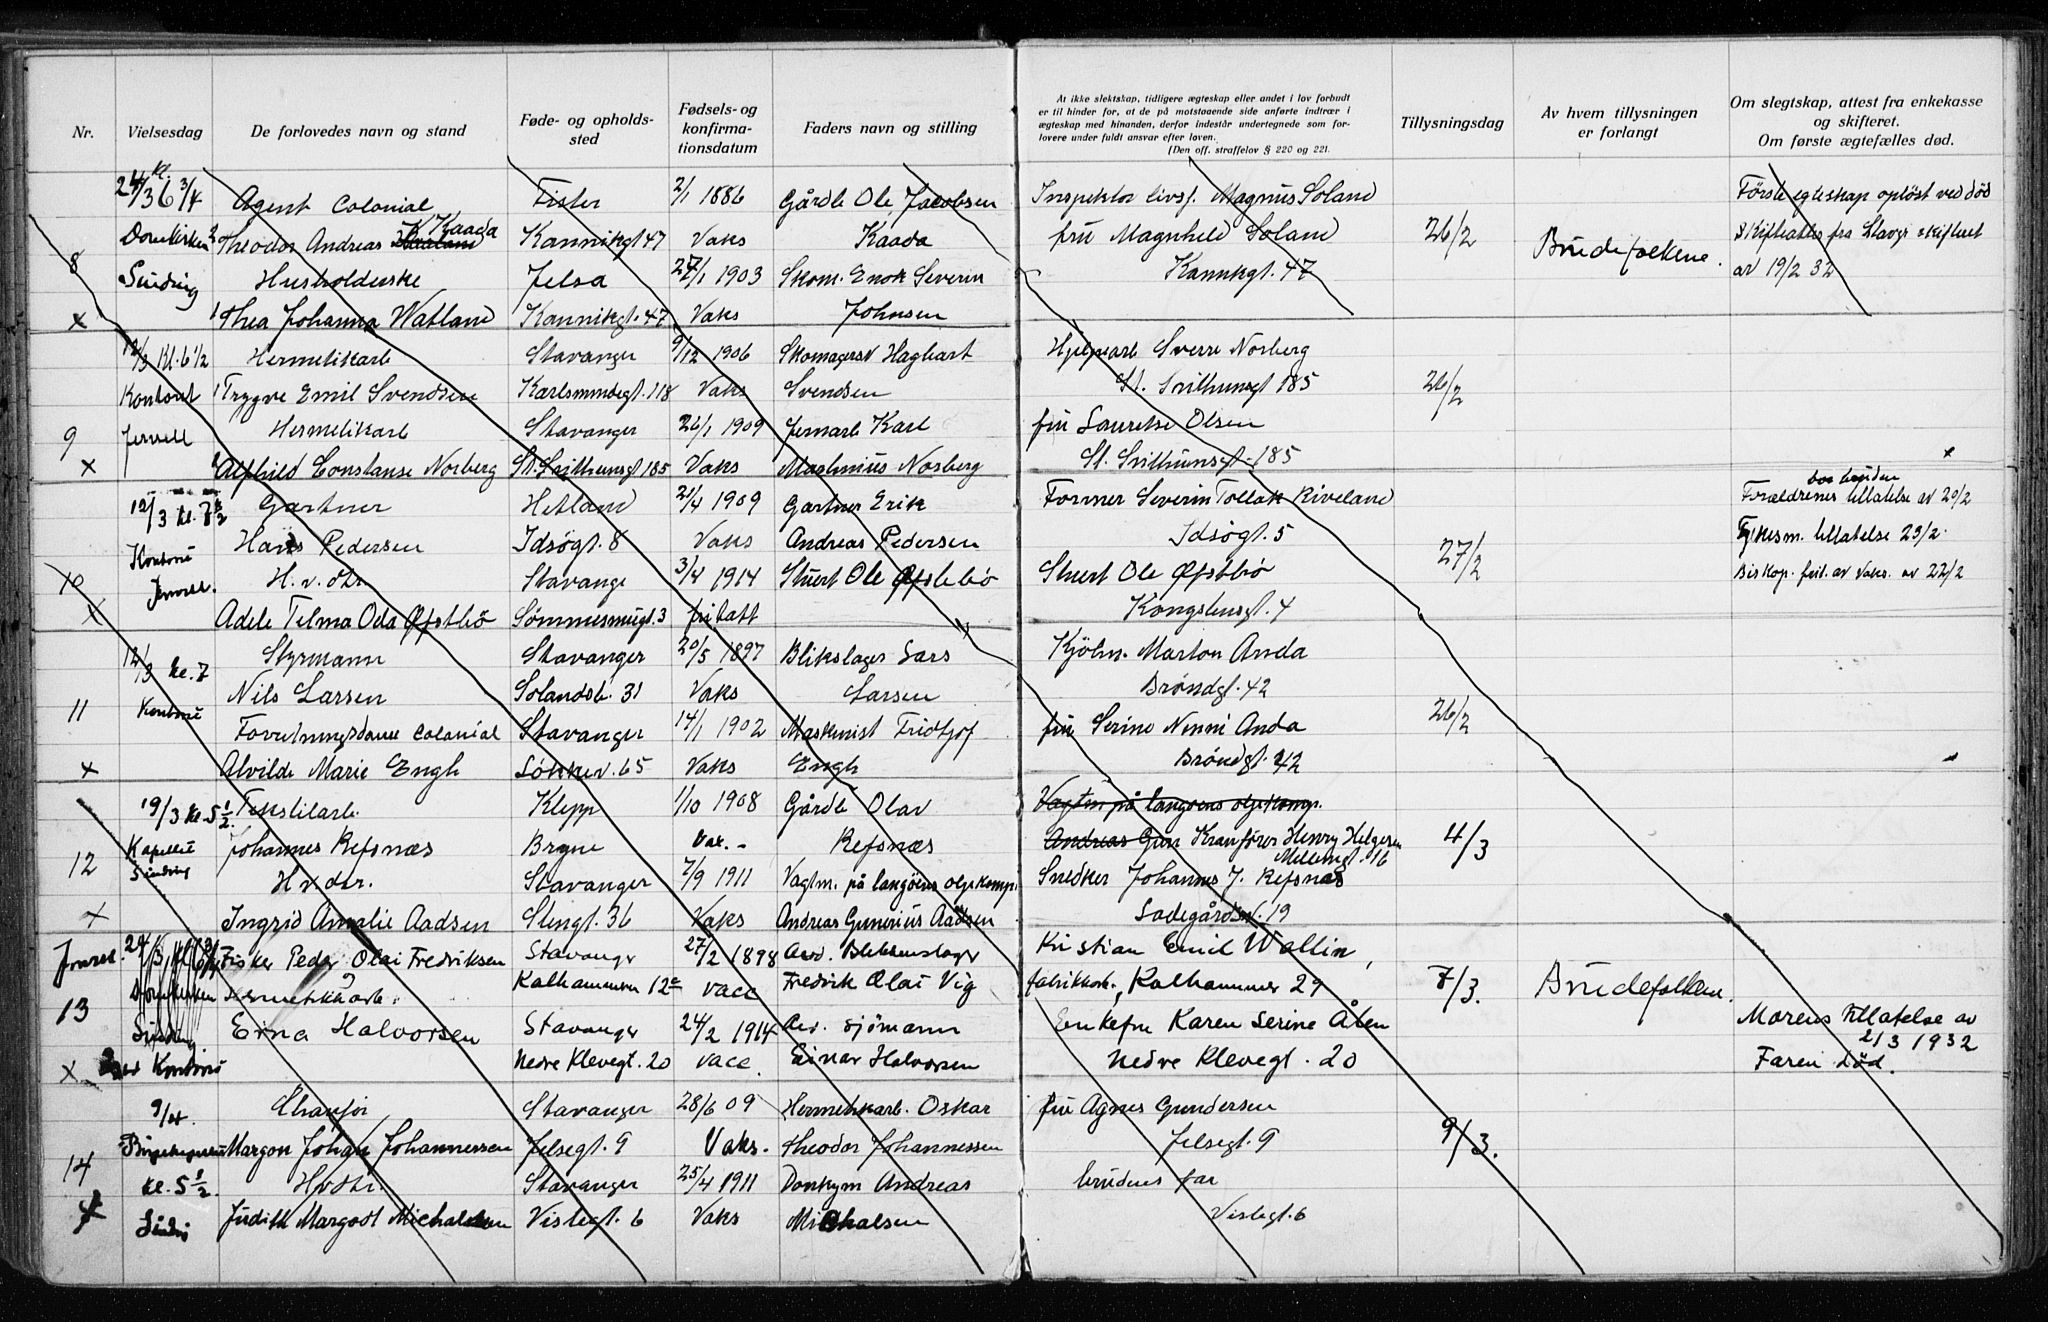 Nr.
Vielsesdag
De forlovedes navn og stand
Føde- og opholds-
sted
Fødsels- og
konfirma-
tionsdatum
Faders navn og stilling
At ikke slektskap, tidligere ægteskap eller andet i lov forbudt
er til hinder for, at de på motstaaende side anførte indtrær i
ægteskap med hinanden, derfor indestår undertegnede som for-
lovere under fuldt ansvar efter loven.
(Den off. straffelov § 220 og 221.
Tillysningsdag
Av hvem tillysningen
er forlangt
Om slegtskap, attest fra enkekasse
og skifteret.
Om første ægtefælles død.
24/3 kl. 6 3/4 Agent Colonial Fister 2/1 1886 Gårdb Ole Jacobsen Inspektør livsf. Magnus Soland Første egteskap opløst ved død
Domkirken Theodor Andreas K Kaada Kannikgt 47 Vaks Kaada fru Magnhild Soland 26/2 Brudefolkene. Skifteattes fra Stavgr skifteret
8 Sinding Husholderske Jelsa 27/1 1903 Skom. Enok Severin Kannkgt. 47 av 19/2 32
x Thea Johanna Watland Kannikgt. 47 Vaks Johnsen
12/3 Kl. 6 1/2 Hermetikarb Stavanger 9/12 1906 Skomagersv Hagbart Hjelpearb Sverre Norberg
Kontoret Trygve Emil Svendsen Karlsmindegt. 118 Vaks Svendsen St. Svithunsgt 185 26/2
9 Jervell Hermetikarb Stavanger 26/1 1909 Jernarb Karl fru Lauritse Olsen
x Alfhild Constanse Norberg St. Svithunsgt 185 Vaks Martinius Norberg St. Svithunsgt. 185 x
12/3 kl. 7 1/2 Gartner Hetland 20/4 1909 Gartner Erik Former Severin Tollak Riveland Forældrenes tillatelse av 20/2
Kontoret Hans Pedersen Idsøgt. 8 Vaks Andreas Pedersen Idsøgt. 5 27/2 Fylkesm. tillatelse 23/2.
10 Jervell. H.v.dtr. Stavange 3/4 1914 Stuert Ole Øfstebø Stuert Ole Øfstbø Biskop. frit. av Vaks. av 22/2
x Adele Telma Oda Øfstbø Sømmesmugt. 3 fritatt Kongstensgt. 4
12/3 kl. 7 Styrmann Stavanger 20/5 1897 Blikslager Lars Kjøbm. Marton Anda
Nils Larsen Solandsb. 31 Vaks Larsen Brøndgt. 42
11 Kontoret Forretningsdame Colonial Stavanger 14/1 1902 Maskinist Fridtjof fru Serine Nenni Anda 26/2
x Alvilde Marie Engh Løkkev. 65 Vaks Engh Brøndgt. 42
19/3 Kl. 5 1/2. Tekstilarb. Klepp 1/10 1908 Gårdb Olav Vagtm på langøens oljekomp.
12 Kapellet Johannes Refsnæs Bryne Vax. - Refsnæs Andreas Gun Kranfører Henry Helgesen 4/3
Sinding Hvdtr. Stavanger 7/9 1911 Vagtm. på langøens oljekomp. Snedker Johannes J. Refsnæs
x Ingrid Amalie Aadsen Stengt. 36 Vaks Andreas Gunerius Aadsen Ladegårdsv. 19
24/3 Fisker Peder Olai Fredriksen Stavanger 27/2 1898 Avd. Blekkenslager Kristian Emil Wallin,
13 Domkirken Hermetikkarb. Kalhammern 12c vacc Fredrik Olai Vig fabrikkarb. Kalhammer 29 7/3. Brudefolkene.
Sinding Erna Halvorsen Stavanger 24/2 1914 Avd. sjømann Enkefru Karen Serine Åsen Morens tillatelse av
21 3 1932
x Kontoret Nedre Klevegt. 20 vacc. Einar Halvorsen Nedre Klevegt. 20 Faren død.
9/4. Chaufør Stavanger 28/6 09 Hermetikarb. Oskar fru Agnes Gundersen
14 Margon Johan Johannessen Jelsegt. 9 Vaks. Theodor Johannessen Jelsegt. 9 9/3.
kl. 5 1/2. Hvdtr. Stavanger 25/4 1911 Donkym Andreas brudens far
x Judith Margodt Michalsen Vistegt. 6 Vaks Michalsen Vistegt. 6